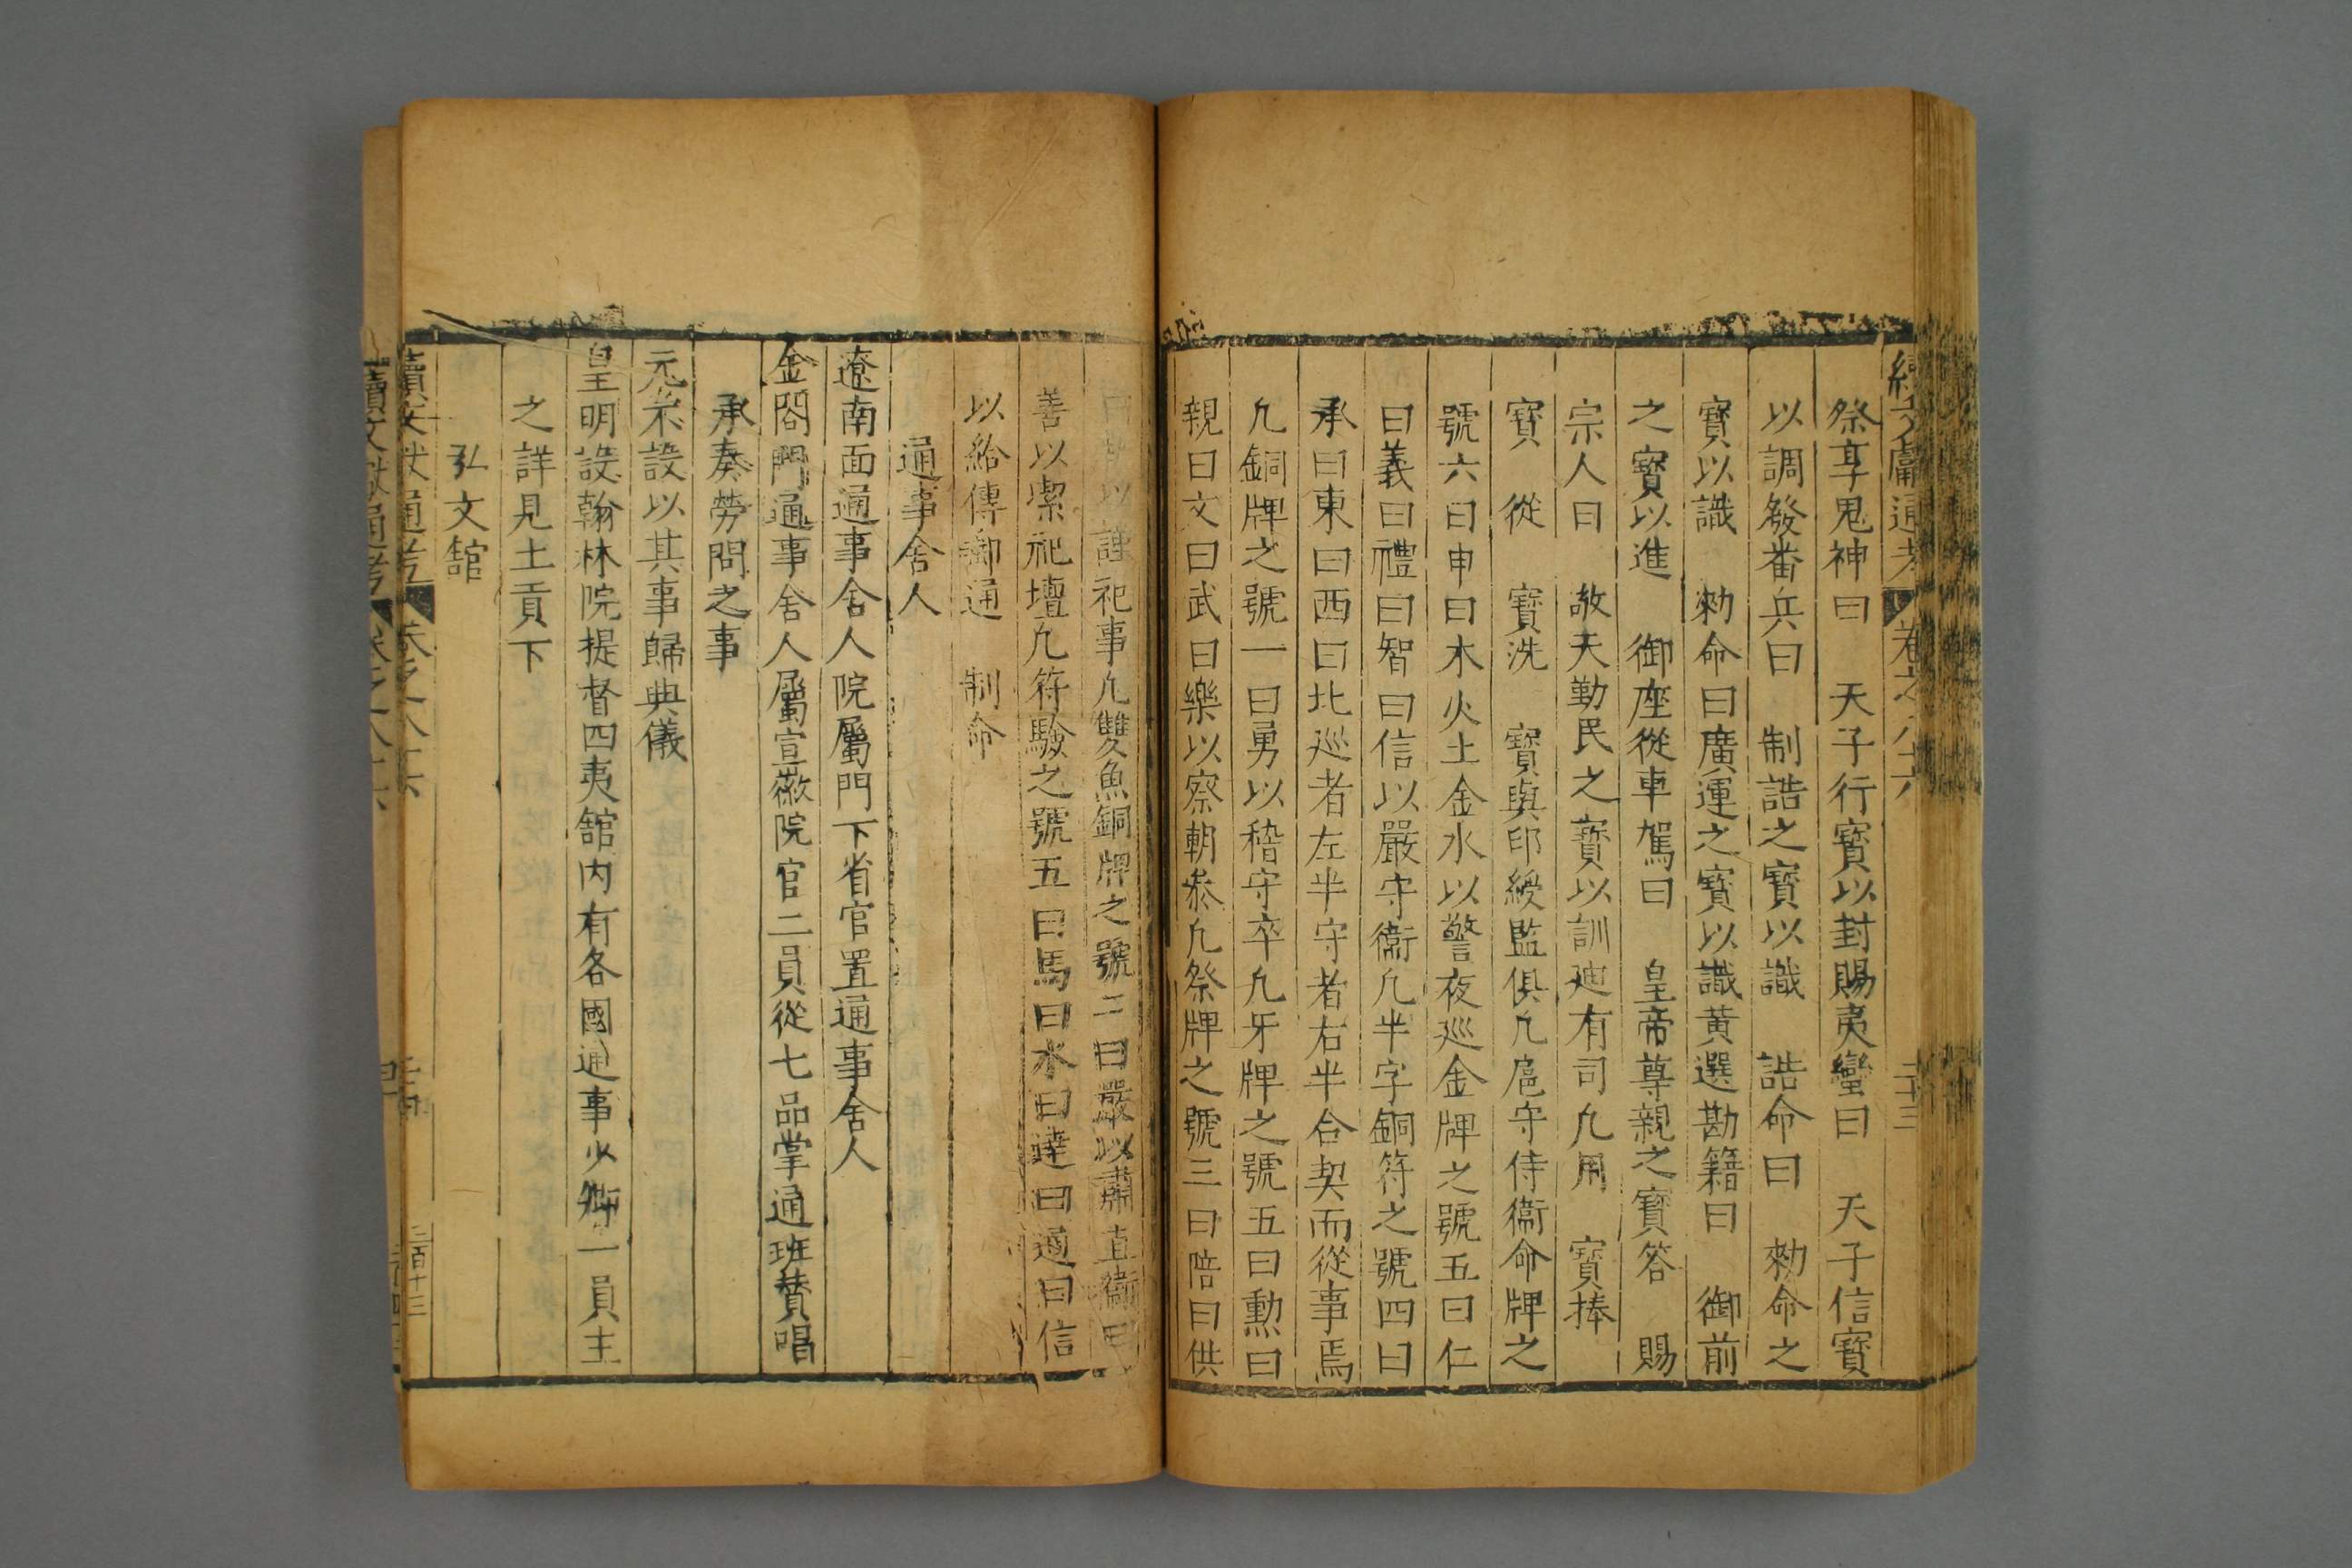 續文獻通考 卷之八十六 二十三
祭享鬼神曰 天子行寳以封賜夷蠻曰 天子信寳
以調發番兵曰 制誥之寳以識 誥命曰 勑命之
寳以識 勑命曰廣運之寳以識黄選勘籍曰 御前
之寳以進 御座從車駕曰 皇帝尊親之寳答 賜
宗人曰 敬天勤民之寳以訓廸有司凢用 寳捧
寳 從 寳洗 寳與印綬監俱凢扈守侍衞命牌之
號六曰申曰木火土金水以警夜巡金牌之號五曰仁
曰義曰禮曰智曰信以嚴守衞凢半字銅符之號四曰
承曰東曰西曰北巡者左半守者右半合契而從事焉
凢銅牌之號一曰勇以稽守卒凢牙牌之號五曰勲曰
親曰文曰武曰樂以察朝叅凢祭牌之號三曰陪曰供
以謹祀事凢雙魚銅牌之號二曰嚴以肅直衞曰
善以潔祀壇凢符驗之號五曰馬曰水曰達曰通曰信
以給傳御通 制命
通事舍人
遼南面通事舍人院屬門下省官置通事舍人
金閤門通事舍人屬宣徽院官二員從七品掌通班賛唱
承奏勞問之事
元不設以其事歸典儀
皇明設翰林院提督四夷舘内有各國通事少卿一員主
之詳見土貢下
弘文舘
續文獻通考 卷之八十六 三百十三
續文獻通考 卷之八十六